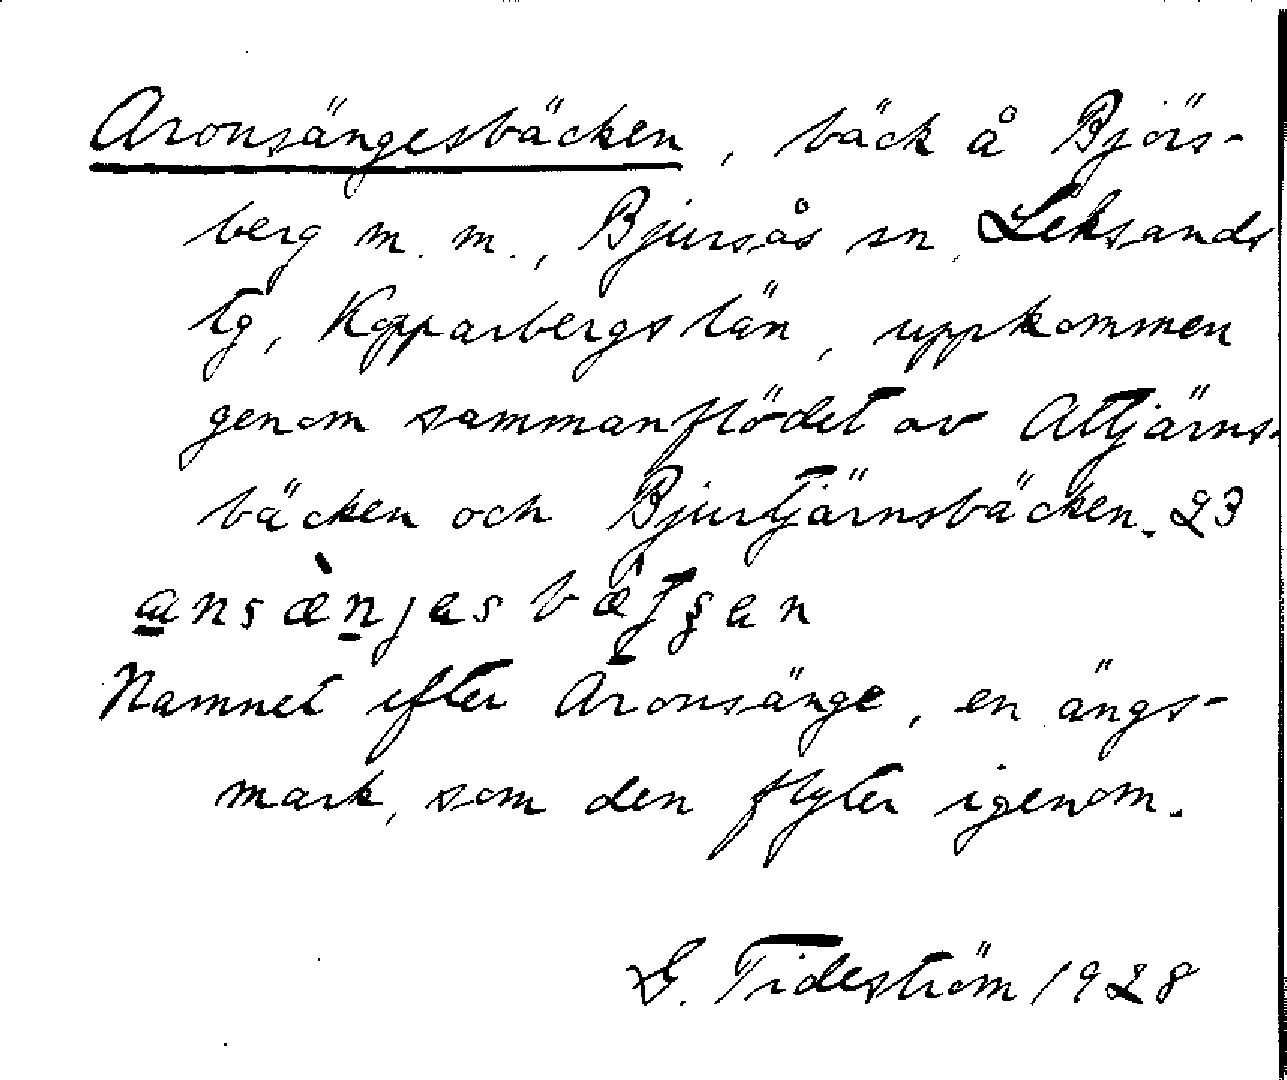 Aronsängesbäcken, bäck å Björs-
berg m. m., Bjursås sn, Leksands
tg, Kopparbergs län, uppkommen
genom sammanflödet av Altjärns-
bäcken och Bjurtjärnsbäcken. 23
Namnet efter Aronsänge, en ängs-
mark, som den flyter igenom.
G. Tideström 1928